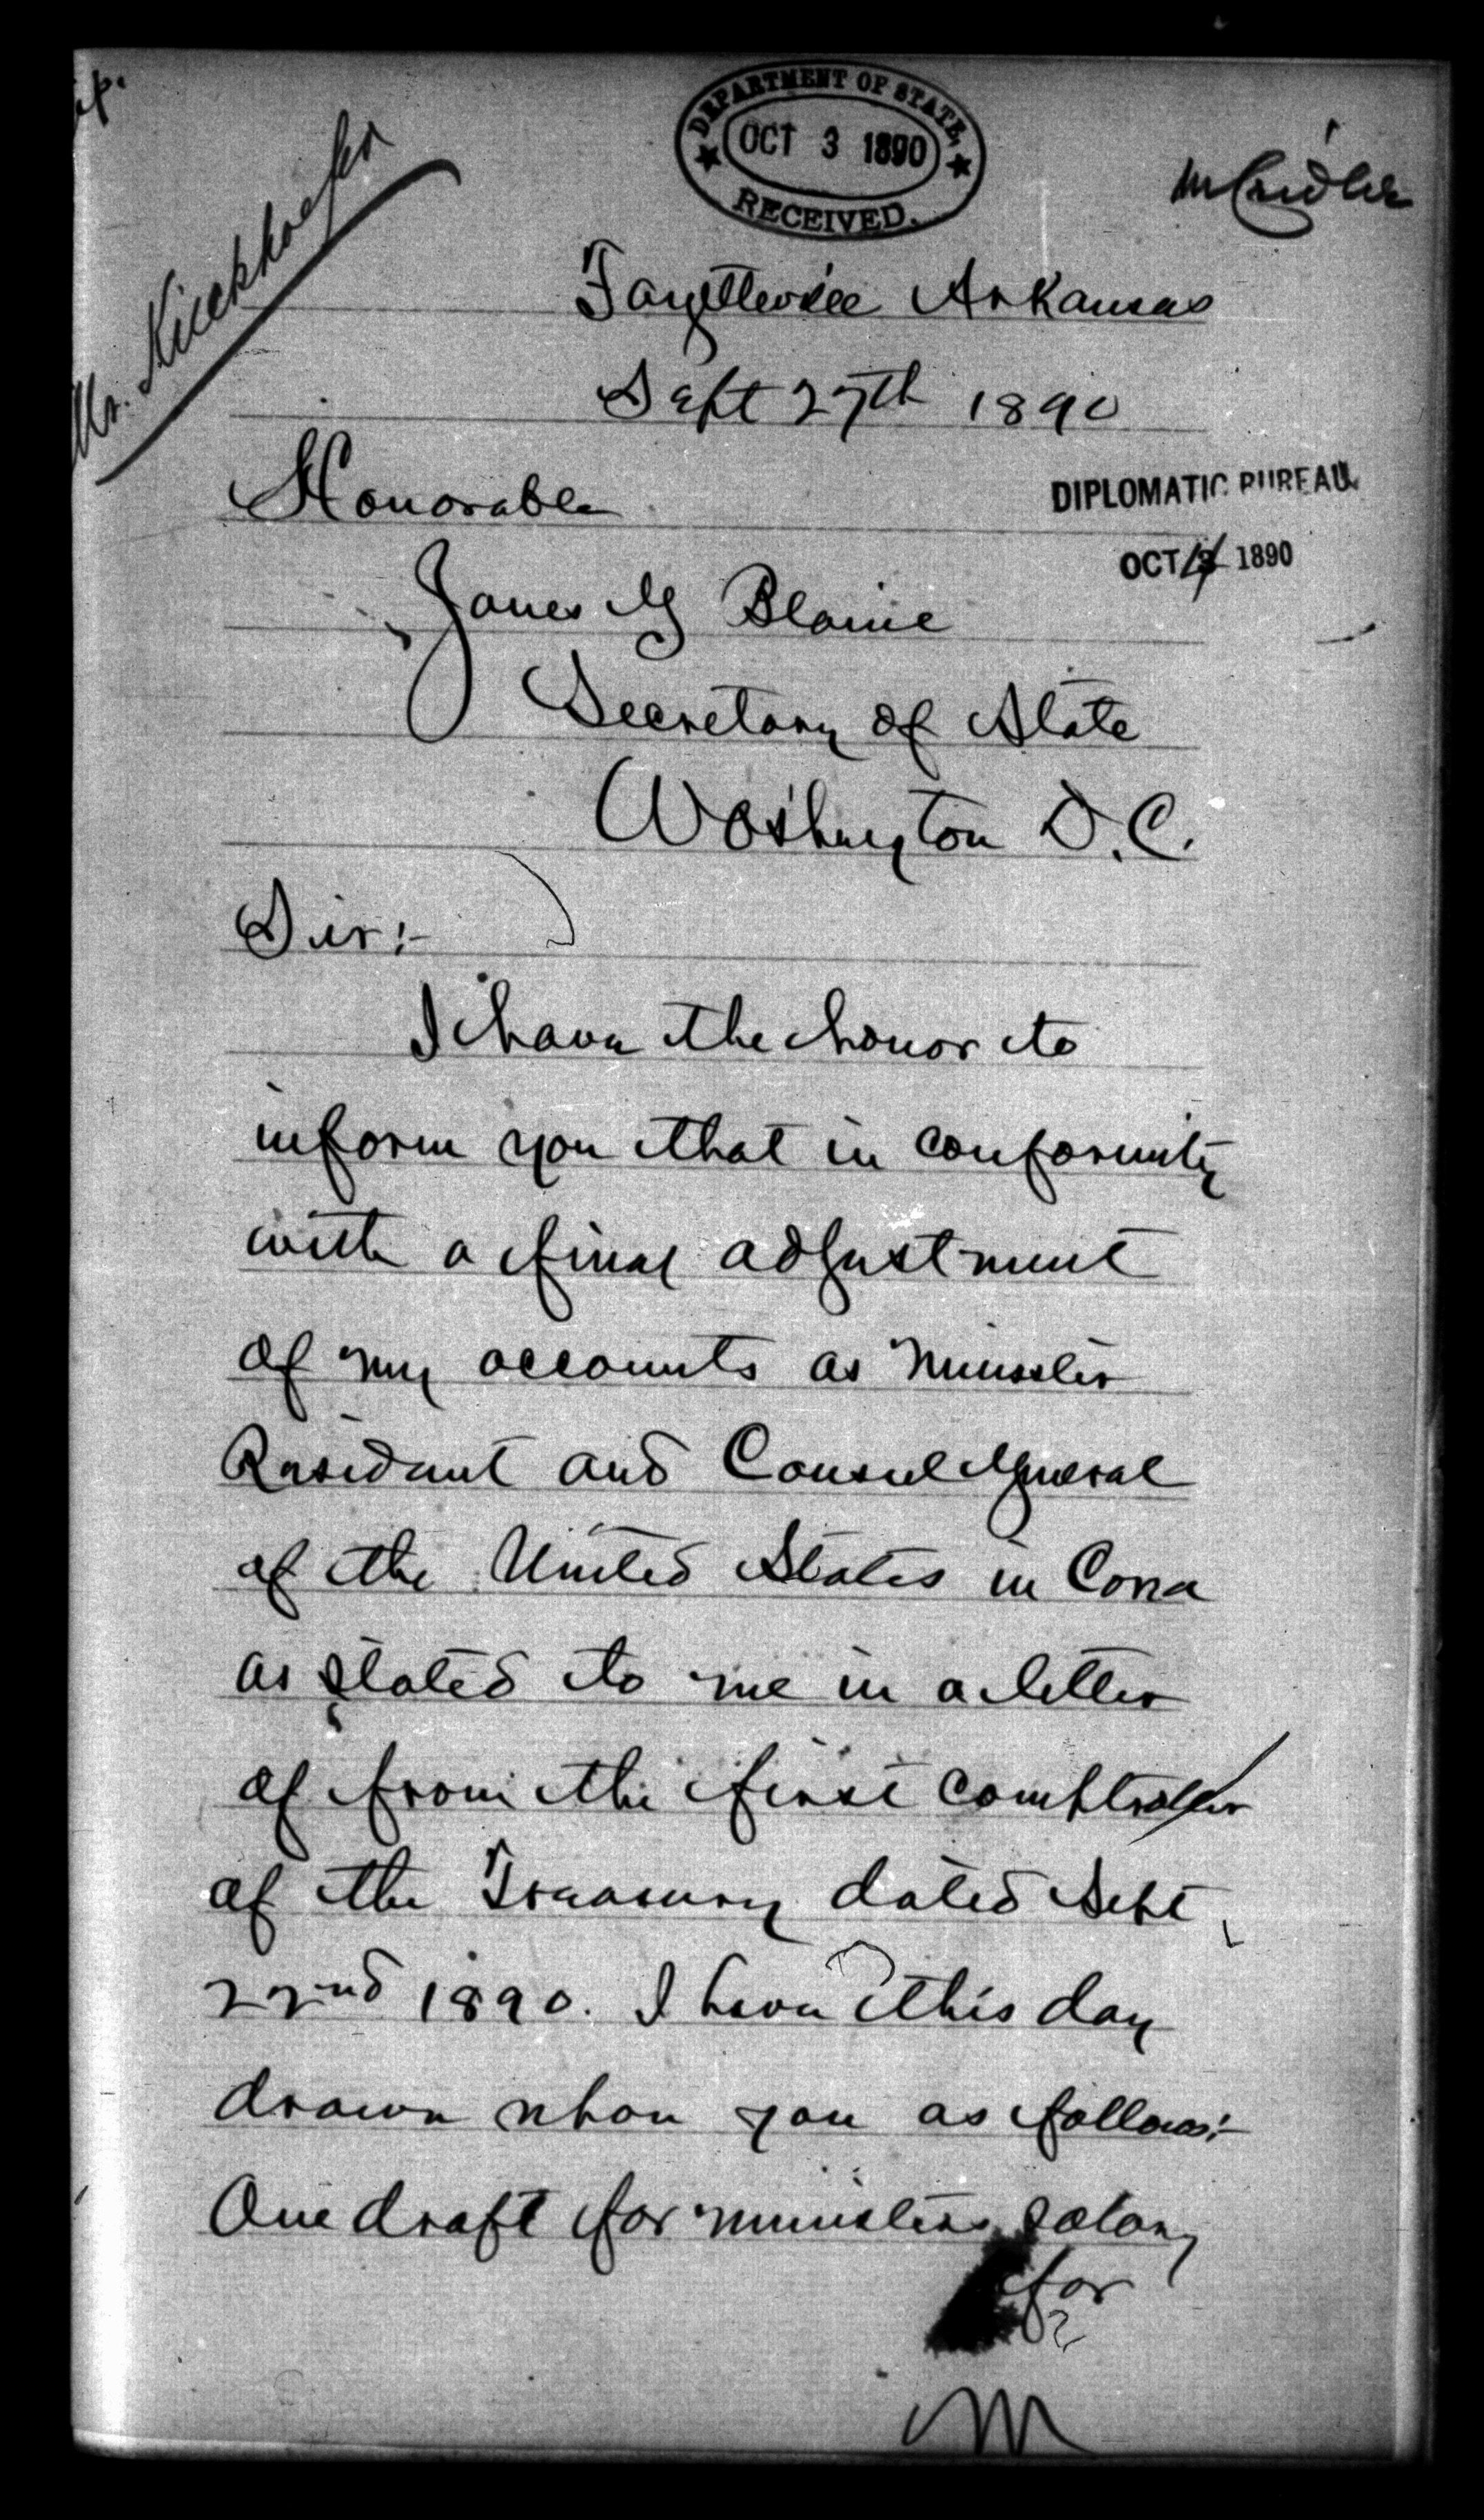 DEPARTMENT OF STATE,
OCT 3 1890
RECEIVED.
Mr. Kieckhoefer
Mr Cridler
Fayetteville Arkansas
Sept 27th 1890
Honorable
DIPLOMATIC BUREAU
OCT 4 1890
James G Blaine
Secretary of State
Washington D.C.
Sir:-
I have the honor to
inform you that in conformity
with a final adjustment
of my accounts as Minister
Resident and Consul General
of the United States in Corea
as stated to me in a letter
of from the first Comptroller
of the Treasury dated Sept
22nd 1890. I have this day
drawn upon you as follows:-
One draft for ministers salary
for